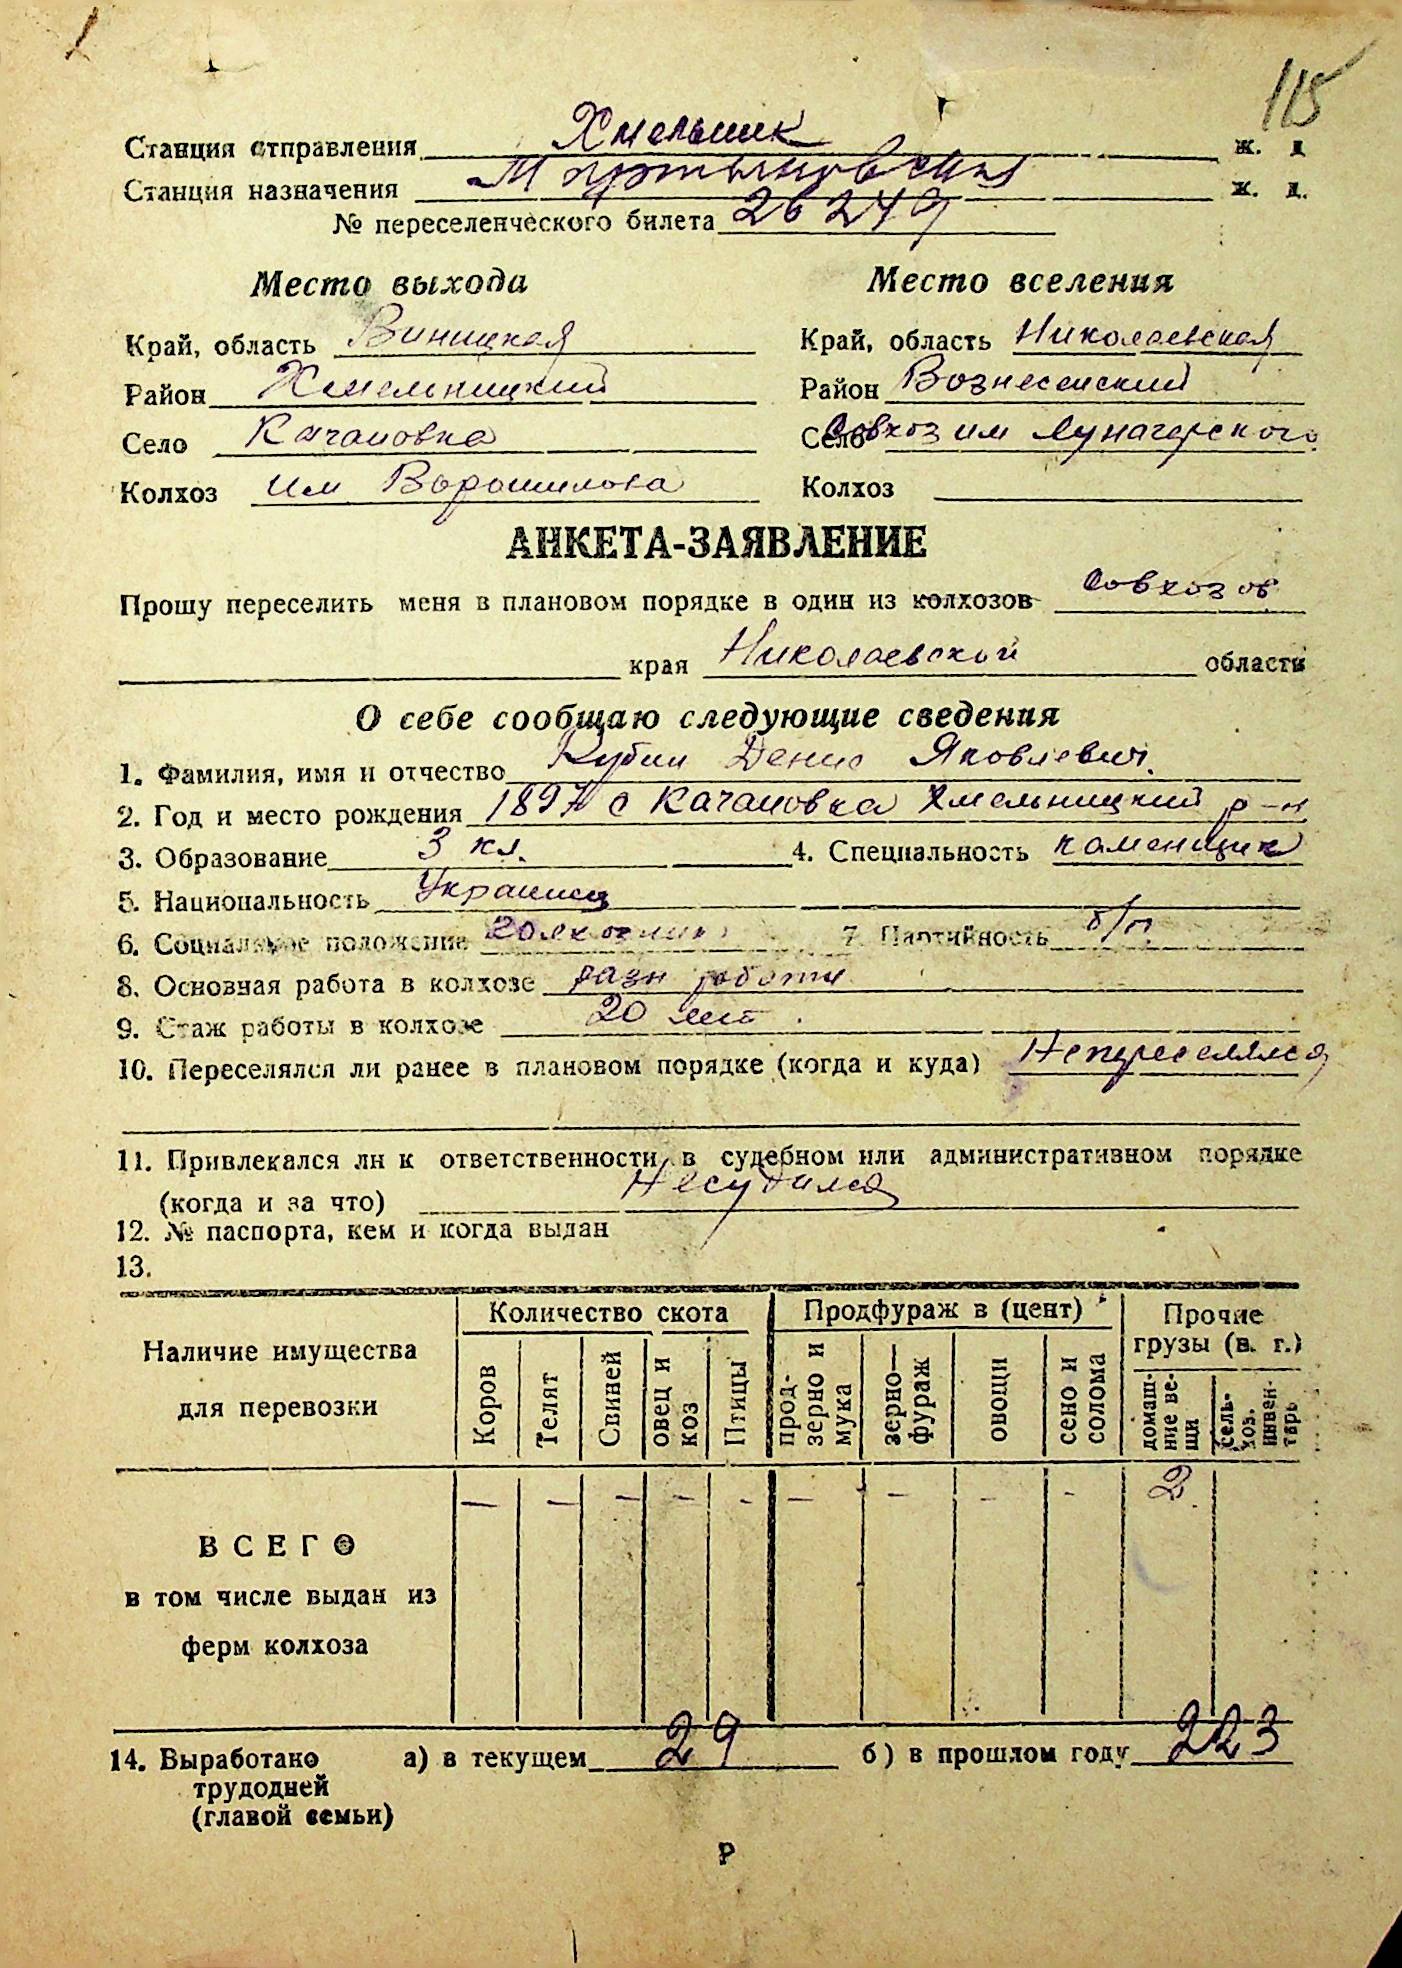 115
Станция отправления Хмельник ж. д
Станция назначения Мартыновская ж. д.
№ переселенческого билета 26249
Место выхода Место вселения
Край, область Виницкая Край, область Николаевская
Район Хмельницкий Район Вознесенский
Село Качановка Село Совхоз им Луначарского
Колхоз им Ворошилова Колхоз
АНКЕТА-ЗАЯВЛЕНИЕ
Прошу переселить меня в плановом порядке в один из колхозов совхозов
края Николаевской области
О себе сообщаю следующие сведения
1. Фамилия, имя и отчество Кубин Денис Яковлевич.
2. Год и место рождения 1897 с Качановка Хмельницкий р-н
3. Образование 3 кл. 4. Специальность каменщик
5. Национальность Украинец
6. Социальное положение колхозник 7. Партийность б/п
8. Основная работа в колхозе разн работы
9. Стаж работы в колхозе 20 лет.
10. Переселялся ли ранее в плановом порядке (когда и куда) Непереселялся
11. Привлекался ли к ответственности в судебном или административном порядке
(когда и за что) Несудился
12. № паспорта, кем и когда выдан
13.
Наличие имущества для перевозки
Количество скота Продфураж в (цент) Прочие грузы (в. г.)
Коров Телят Свиней овец и коз Птицы прод-зерно и мука зерно—фураж овощи сено и солома домаш-ние ве-щи сель-хоз. инвен-тарь
— — — — - — - — - - 2
ВСЕГО
в том числе выдан из
ферм колхоза
14. Выработано а) в текущем 29 б) в прошлом году 223
трудодней
(главой семьи)
Р